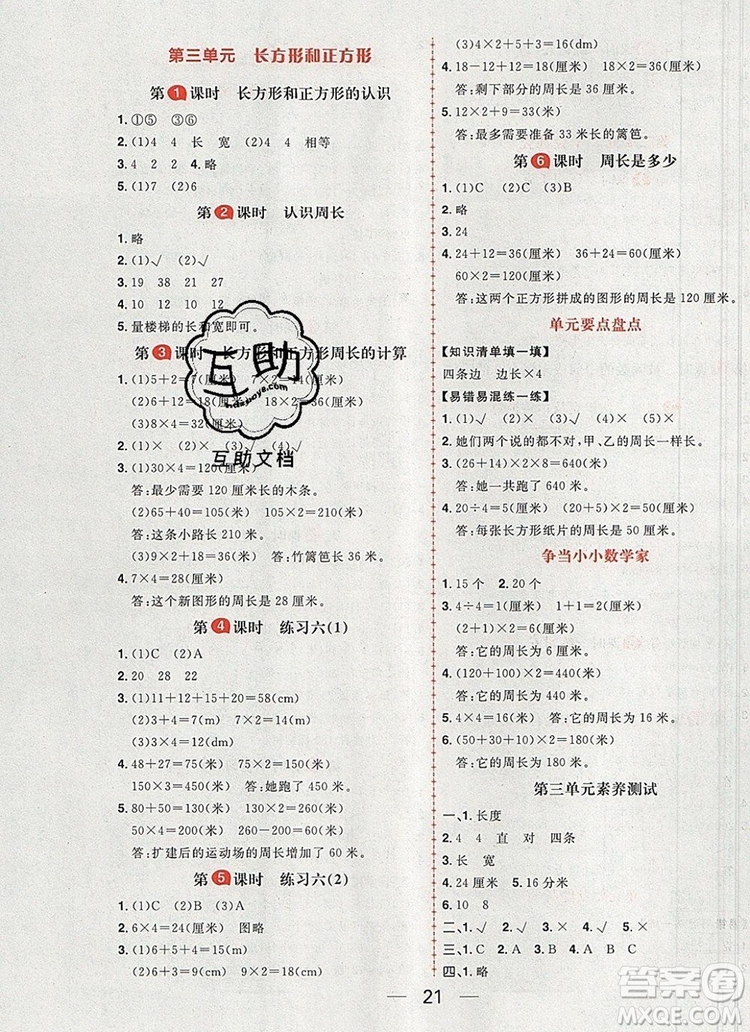 第三单元　长方形和正方形
第1课时　长方形和正方形的认识
1. ①⑤　③⑥
2. (1)4　4　长　宽　(2)4　4　相等
3. 4　2　2　4. 略
5. (1)7　(2)6
第2课时　认识周长
1. 略
2. (1)√　(2)√
3. 19　38　21　27
4. 10　12　10　12
5. 量楼梯的长和宽即可。
第3课时　长方形和正方形周长的计算
1. (1)5+2=7(厘米)　7×2=14(厘米)
(2)16+2=18(厘米)　18×2=36(厘米)
(3)8×4=32(厘米)
2. (1)×　(2)×　(3)√　(4)√
3. (1)30×4=120(厘米)
答:最少需要 120 厘米长的木条。
(2)65+40=105(米)　105×2=210(米)
答:这条小路长 210 米。
(3)9×4=36(米)　答:竹篱笆长 36 米。
4. 7×4=28(厘米)
答:这个新图形的周长是 28 厘米。
第4课时　练习六(1)
1. (1)C　(2)A
2. 20　28　22
3. (1)11+12+15+20=58(cm)
(2)3+4=7(cm)　7×2=14(cm)
(3)3×4=12(cm)
4. 48+27=75(米)　75×2=150(米)
150×3=450(米)　答:她跑了 450 米。
5. 80+50=130(米)　130×2=260(米)
50×4=200(米)　260-200=60(米)
答:扩建后的运动场的周长增加了 60 米。
第5课时　练习六(2)
1. (1)C　(2)B　(3)A
2. 6×4=24(厘米)　图略
3. (1)6×4=24(厘米)
(2)6+3=9(厘米)　9×2=18(厘米)
(3)4×2+5+3=16(cm)
4. 18-12=6(厘米)　(12+6)×2=36(厘米)
答:剩下部分的周长是 36 厘米。
5. 12×2+9=33(米)
答:最多需要准备 33 米长的篱笆。
第6课时　周长是多少
1. (1)C　(2)C　(3)B
2. 略
3. 24
4. 24+12=36(厘米)　36+24=60(厘米)
60×2=120(厘米)
答:这两个正方形拼成的图形的周长是 120 厘米。
单元要点盘点
【知识清单填一填】
四条边　边长×4
【易错易混练一练】
1. (1)√　(2)×　(3)√　(4)√　(5)×
2. 她们两个说的都不对,甲、乙的周长一样长。
3. (26+14)×2=80(米)　80×2=160(米)
答:她一共跑了 160 米。
4. 20÷4=5(厘米)　(20+5)×2=50(厘米)
答:每张长方形纸片的周长是 50 厘米。
争当小小数学家
1. 15 个　2. 20 个
3. 4÷4=1(厘米)　1+1=2(厘米)
(2+1)×2=6(厘米)
答:它的周长是 6 厘米。
4. (120+100)×2=440(厘米)
答:它的周长是 440 厘米。
5. 4×4=16(米)　答:它的周长为 16 米。
6. (50+30+10)×2=180(米)
答:它的周长为 180 米。
第三单元素养测试
一、1. 长度
2. 4　4　直　对　四条
3. 长　宽
4. 24 厘米　5. 16 分米
6. 10　8
二、1. √　2. √　3. ×　4. √　5. ×
三、1. C　2. C　3. B　4. A　5. A
四、1. 略
21
互助
hdzuoye.com
互助文档
答案圈
MXQE.COM